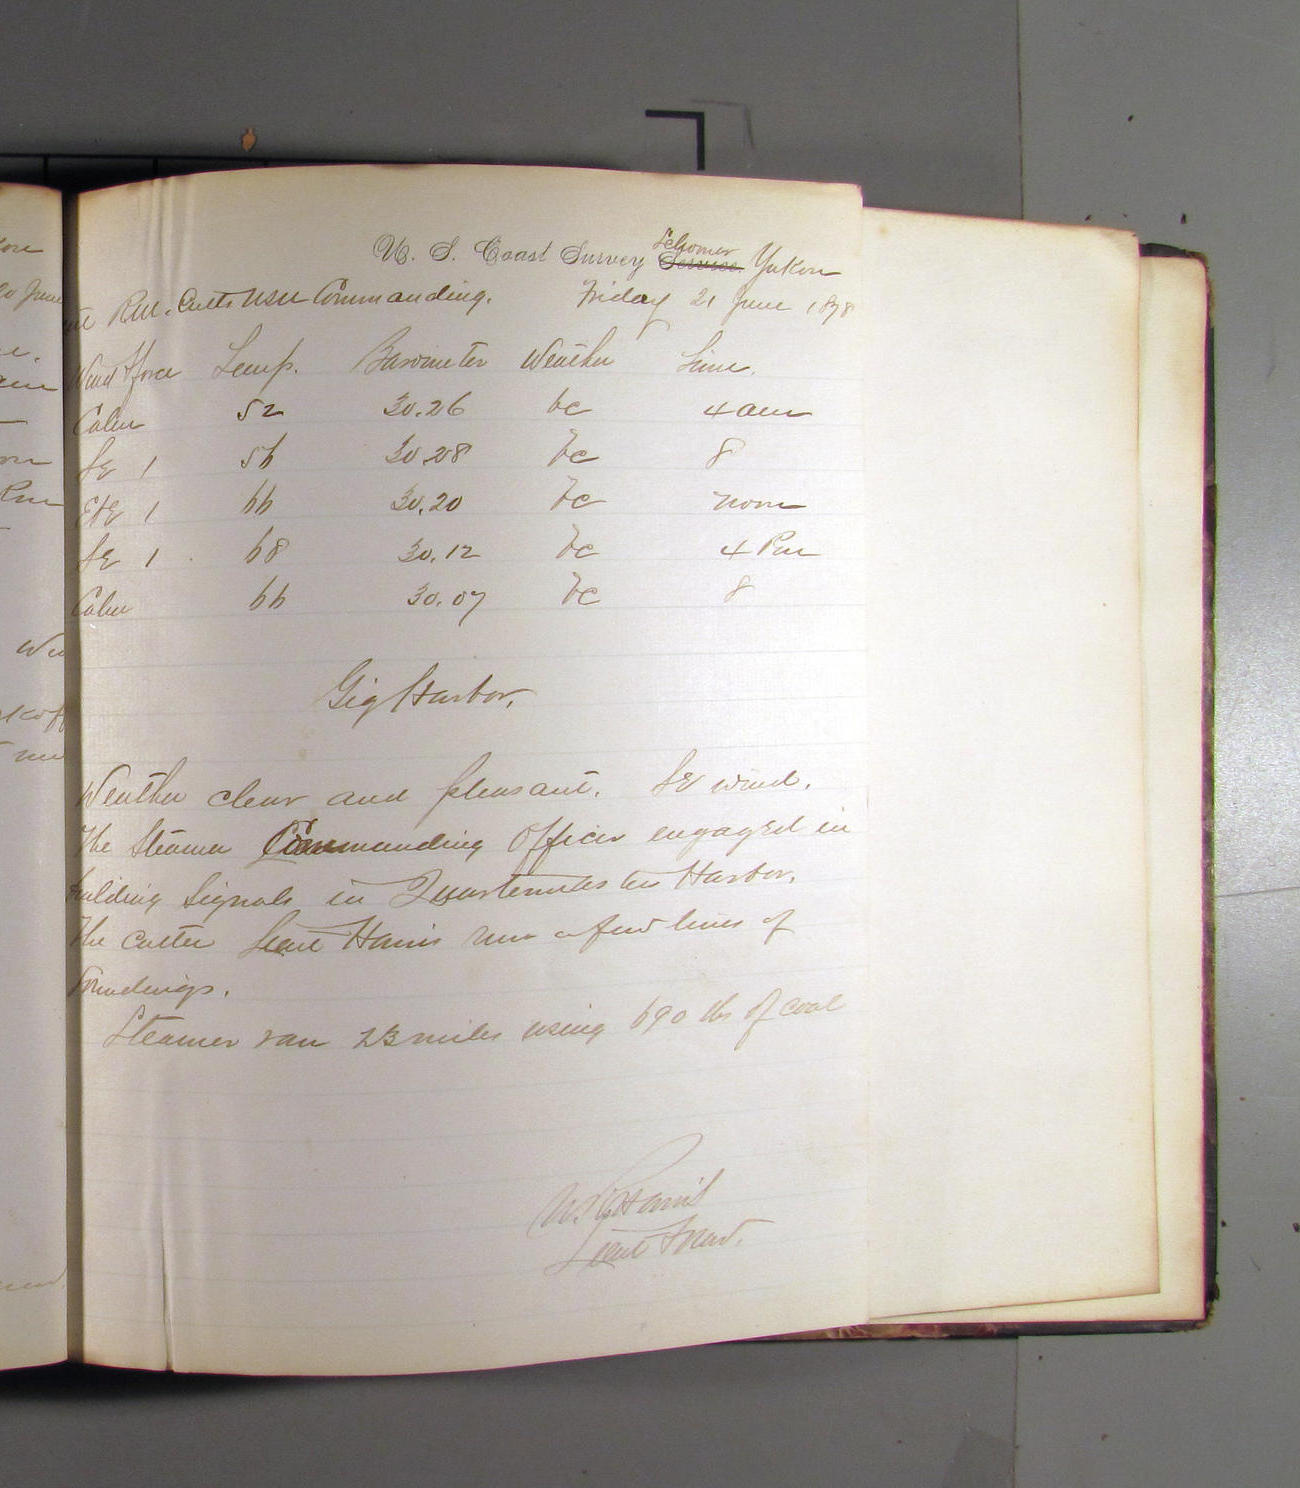 U. S. Coast Survey Schooner Service Yukon
R.M. Cutts USN Commanding. Friday 21 June 1878
Wind & force Temp. Barometer Weather Time.
Calm 52 30.26 bc 4 am
SE 1 56 30.28 bc 8
ExE 1 66 30.20 bc noon
SE 1 68 30.12 bc 4 Pm
Calm 66 30.07 bc 8
Gig Harbor,
Weather clear and pleasant. SE wind.
The Steamer Commanding Officer engaged in
building Signals in Quartermaster Harbor.
The cutter Lieut Harris run a few lines of
Soundings.
Steamer ran 23 miles using 690 lbs of coal
Harris
Lieut